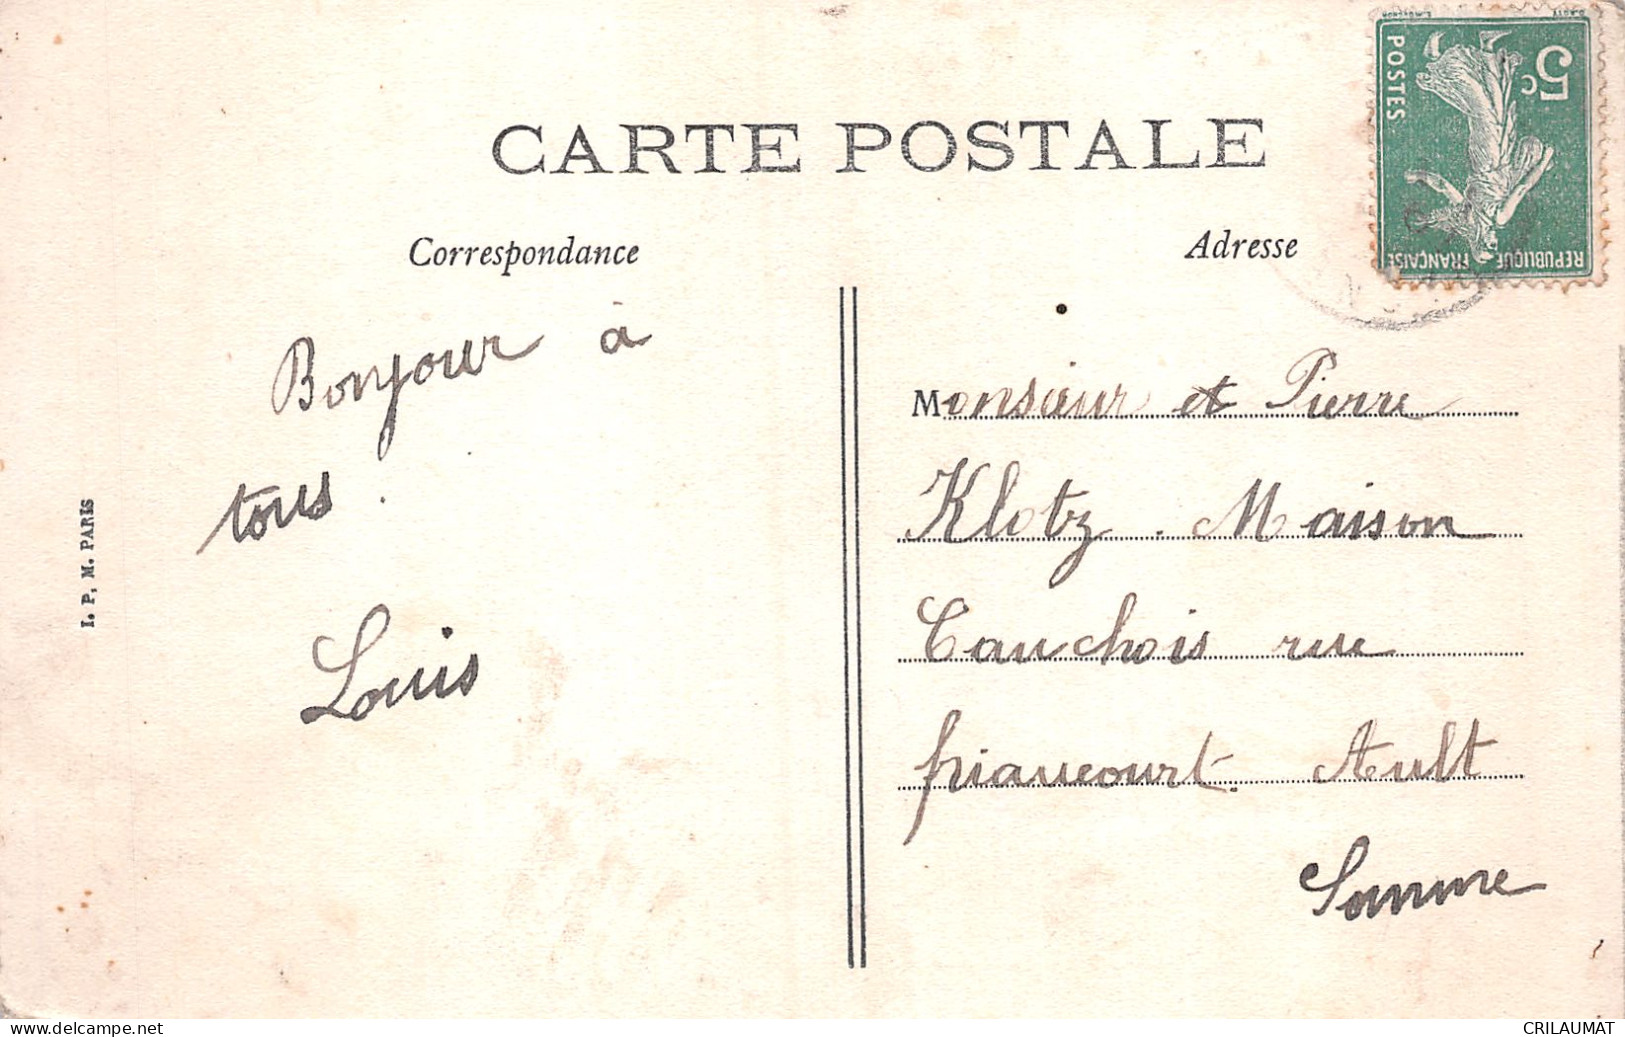 CARTE POSTALE
Correspondance
Adresse
5c
POSTES
REPUBLIQUE FRANÇAISE
Bonjour à
tous.
Louis
Monsieur et Pierre
Klotz. Maison
Cauchois rue
friaucourt. Ault
Somme
I. P. M. PARIS
www.delcampe.net
CRILAUMAT